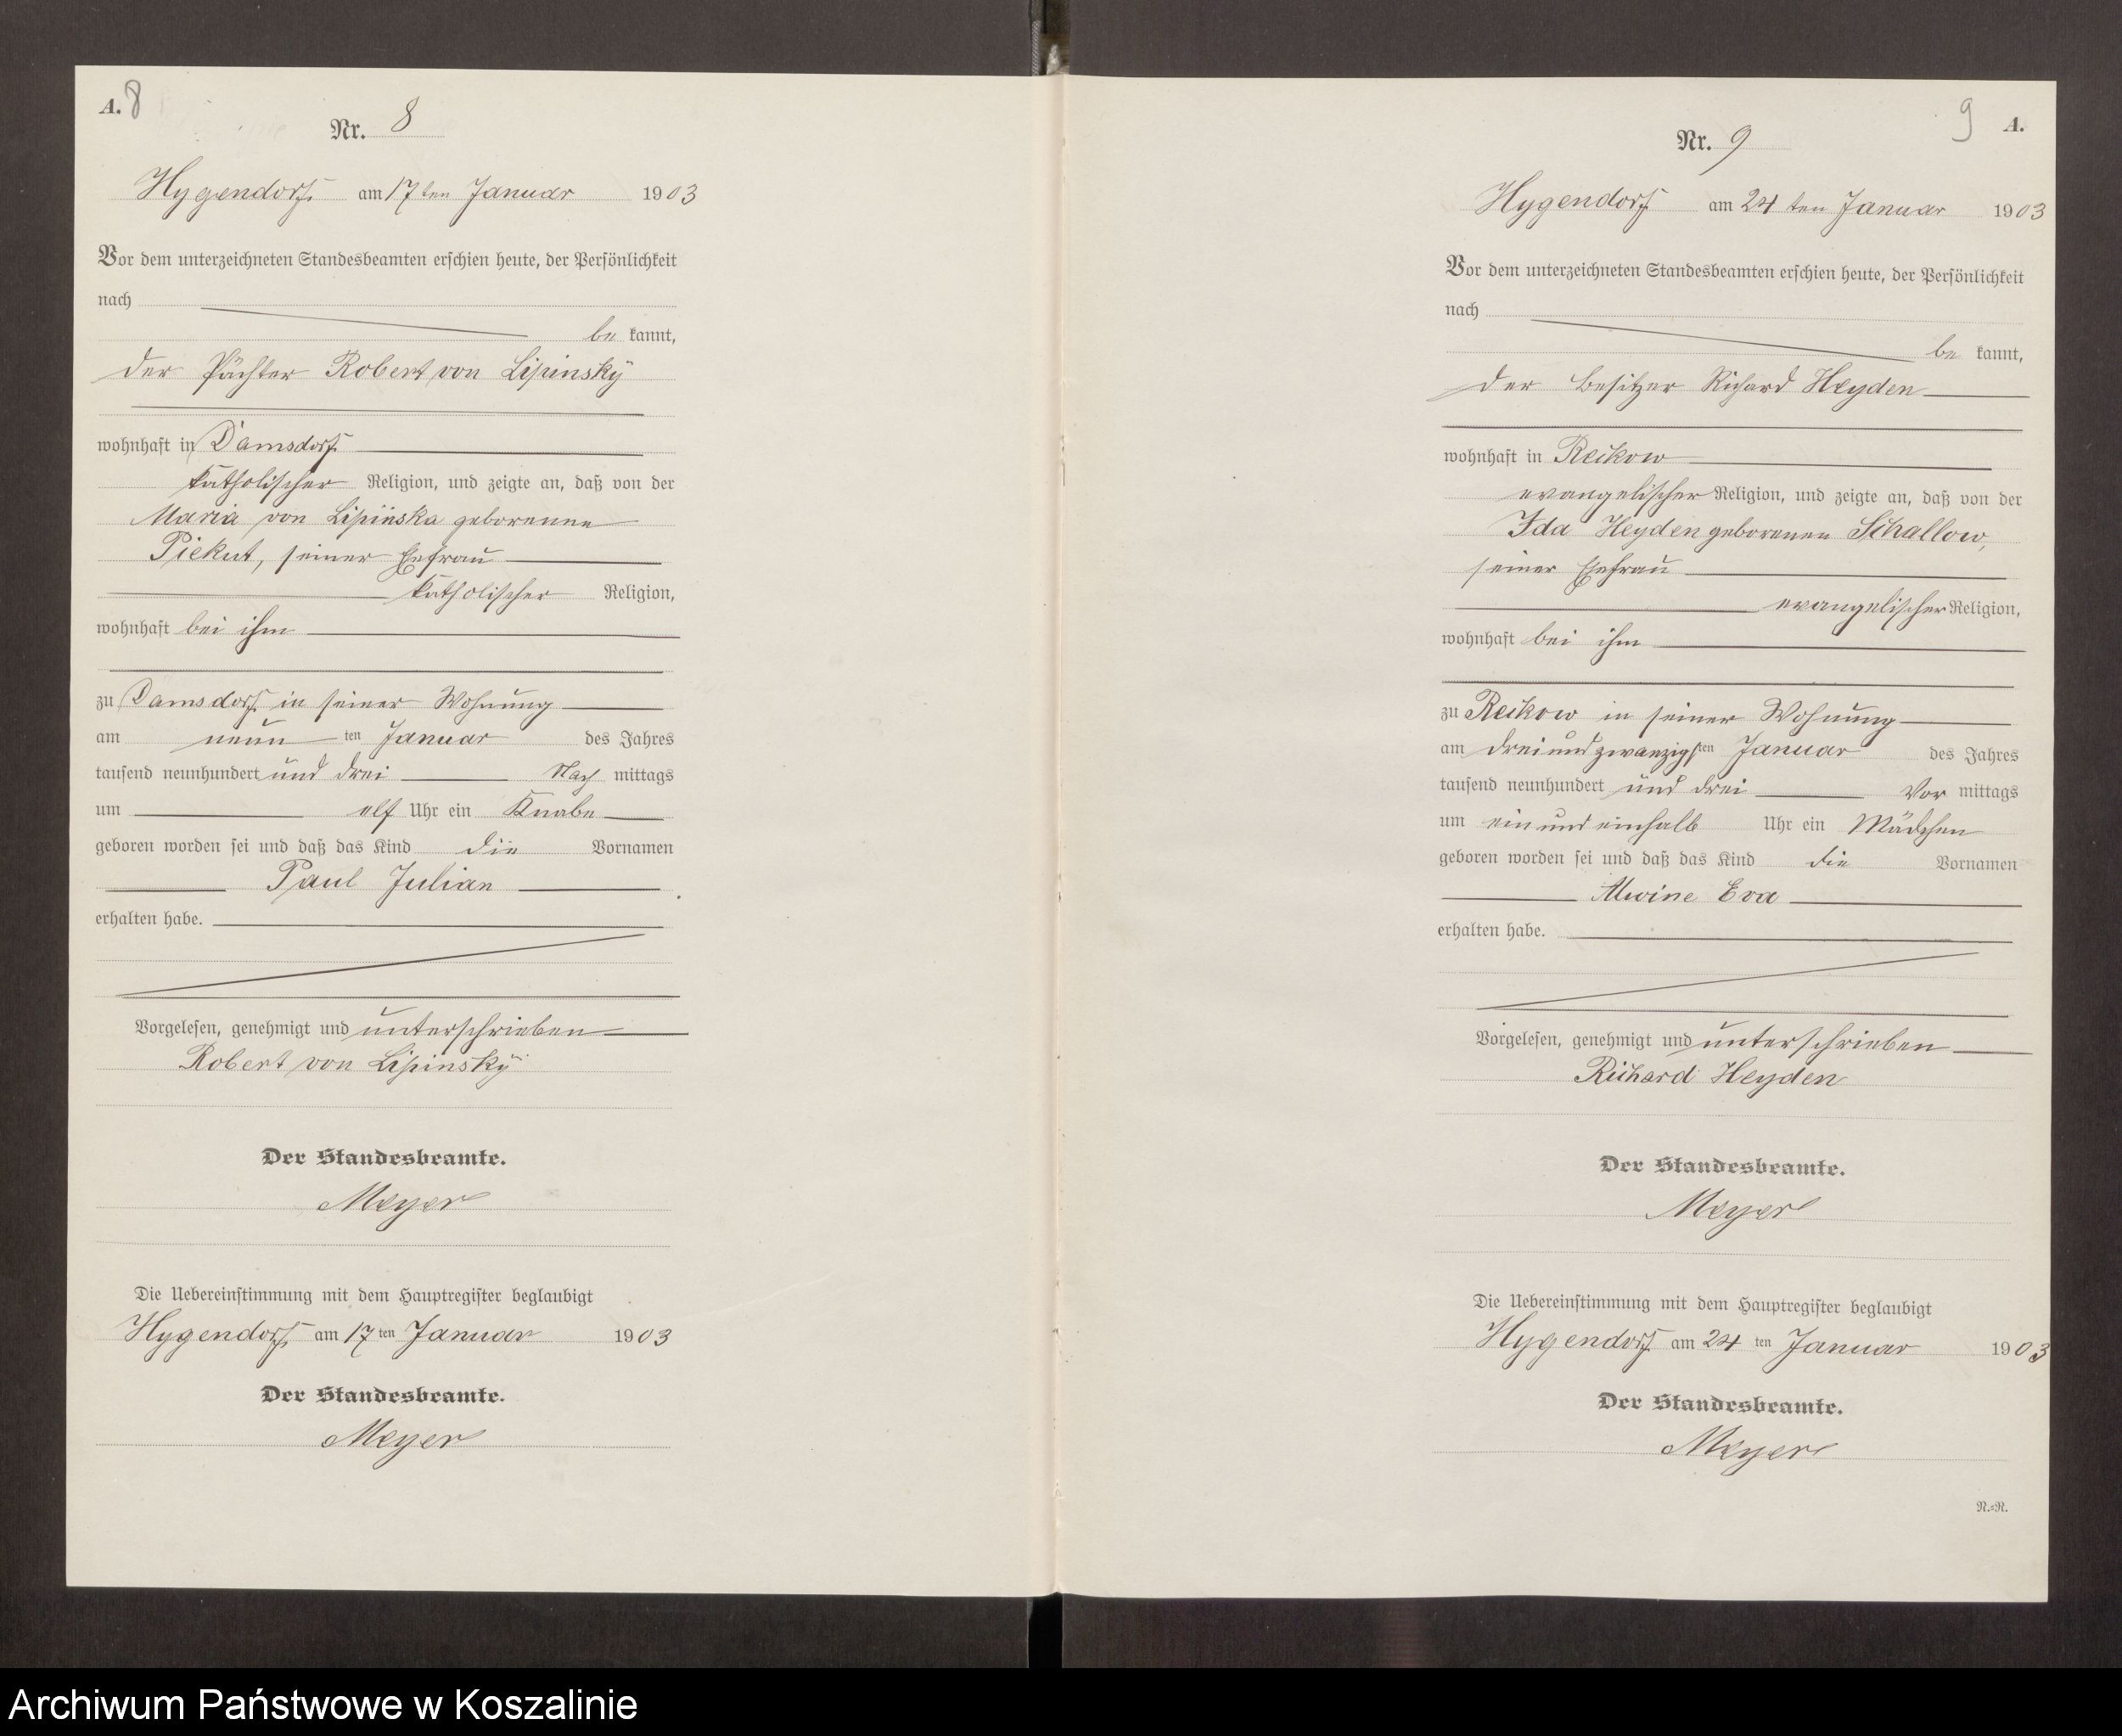 A. 8
Nr. 8
Hygendorf am 17ten Januar 1903
Vor dem unterzeichneten Standesbeamten erschien heute, der Persönlichkeit
nach
be kannt,
der Pächter Robert von Lipinsky
wohnhaft in Damsdorf
katholischer Religion, und zeigte an, daß von der
Maria von Lipinska geborenen
Piekut, seiner Ehefrau
katholischer Religion,
wohnhaft bei ihm
zu Damsdorf in seiner Wohnung
am neun ten Januar des Jahres
tausend neunhundert und drei Nach mittags
um elf Uhr ein Knabe
geboren worden sei und daß das Kind die Vornamen
Paul Julian
erhalten habe.
Vorgelesen, genehmigt und unterschrieben
Robert von Lipinsky
Der Standesbeamte.
Meyer
Die Uebereinstimmung mit dem Hauptregister beglaubigt
Hygendorf am 17 ten Januar 1903
Der Standesbeamte.
Meyer
9 A.
Nr. 9
Hygendorf am 24 ten Januar 1903
Vor dem unterzeichneten Standesbeamten erschien heute, der Persönlichkeit
nach
be kannt,
der Besitzer Richard Heyden
wohnhaft in Reikow
evangelischer Religion, und zeigte an, daß von der
Ida Heyden geborenen Schallow,
seiner Ehefrau
evangelischer Religion,
wohnhaft bei ihm
zu Reikow in seiner Wohnung
am dreiundzwanzigs ten Januar des Jahres
tausend neunhundert und drei Vor mittags
um ein und einhalb Uhr ein Mädchen
geboren worden sei und daß das Kind die Vornamen
Alwine Eva
erhalten habe.
Vorgelesen, genehmigt und unterschrieben
Richard Heyden
Der Standesbeamte.
Meyer
Die Uebereinstimmung mit dem Hauptregister beglaubigt
Hygendorf am 24 ten Januar 1903
Der Standesbeamte.
Meyer
N.=N.
Archiwum Państwowe w Koszalinie